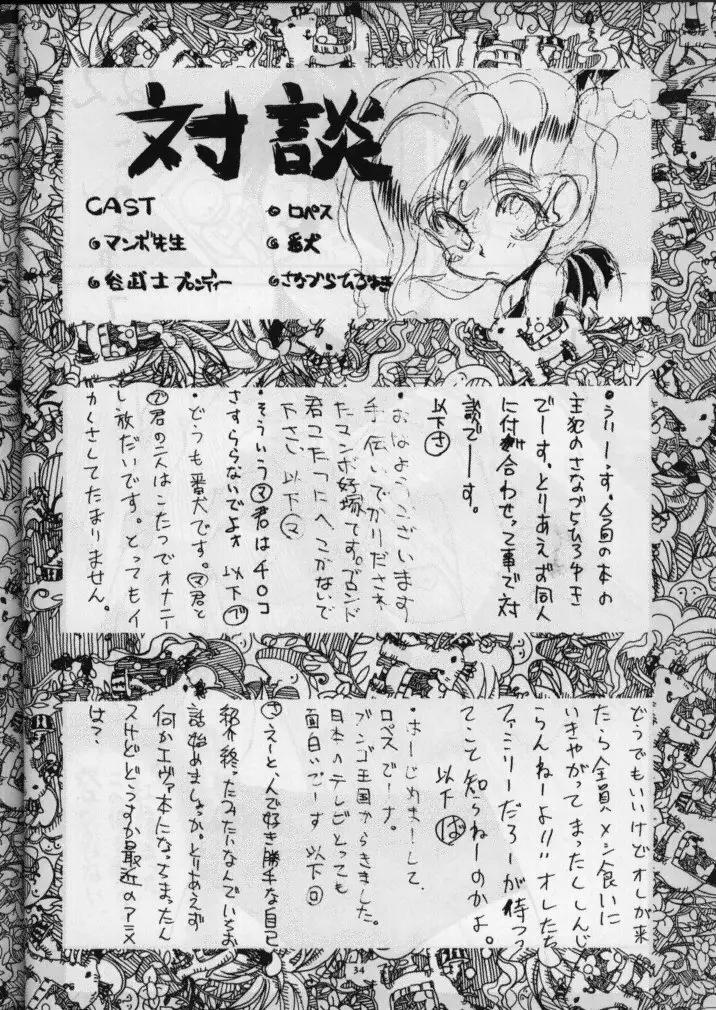 対談
CAST
マンボ先生
谷武士ブンディー
ロペス
番犬
さなづらひろゆき
・うぃーっす、今回の本の
主犯のさなづらひろゆき
でーす、とりあえず同人
に付き合わせって事で対
談でーす。
以下さ
・おはようございます
手伝いでかりだされ
たマンボ好塚です。ブロンド
君こたつにへこかないで
下さい 以下マ
・そういうマ君はチ○コ
さすらないでよォ 以下ブ
・どうも番犬です。マ君と
ブ君の二人はこたつでオナニー
し放だいです。とってもイ
カくさくてたまりません。
どうでもいいけどオレが来
たら全員メシ食いに
いきやがってまったくしんじ
らんねーよ!!オレたち
ファミリーだろーが待つっ
てこと知らねーのかよ。
以下ば
・はーじめまーして、
ロペスでーす。
ブンゴ王国からきました。
日本のテレビとっても
面白いでーす 以下ロ
さ えーと、んで好き勝手な自己
紹介終ったみたいなんでいちお
話始めましょっか。とりあえず
何かエヴァ本になってまったん
スけどどうすか最近のアニメ
は?
34